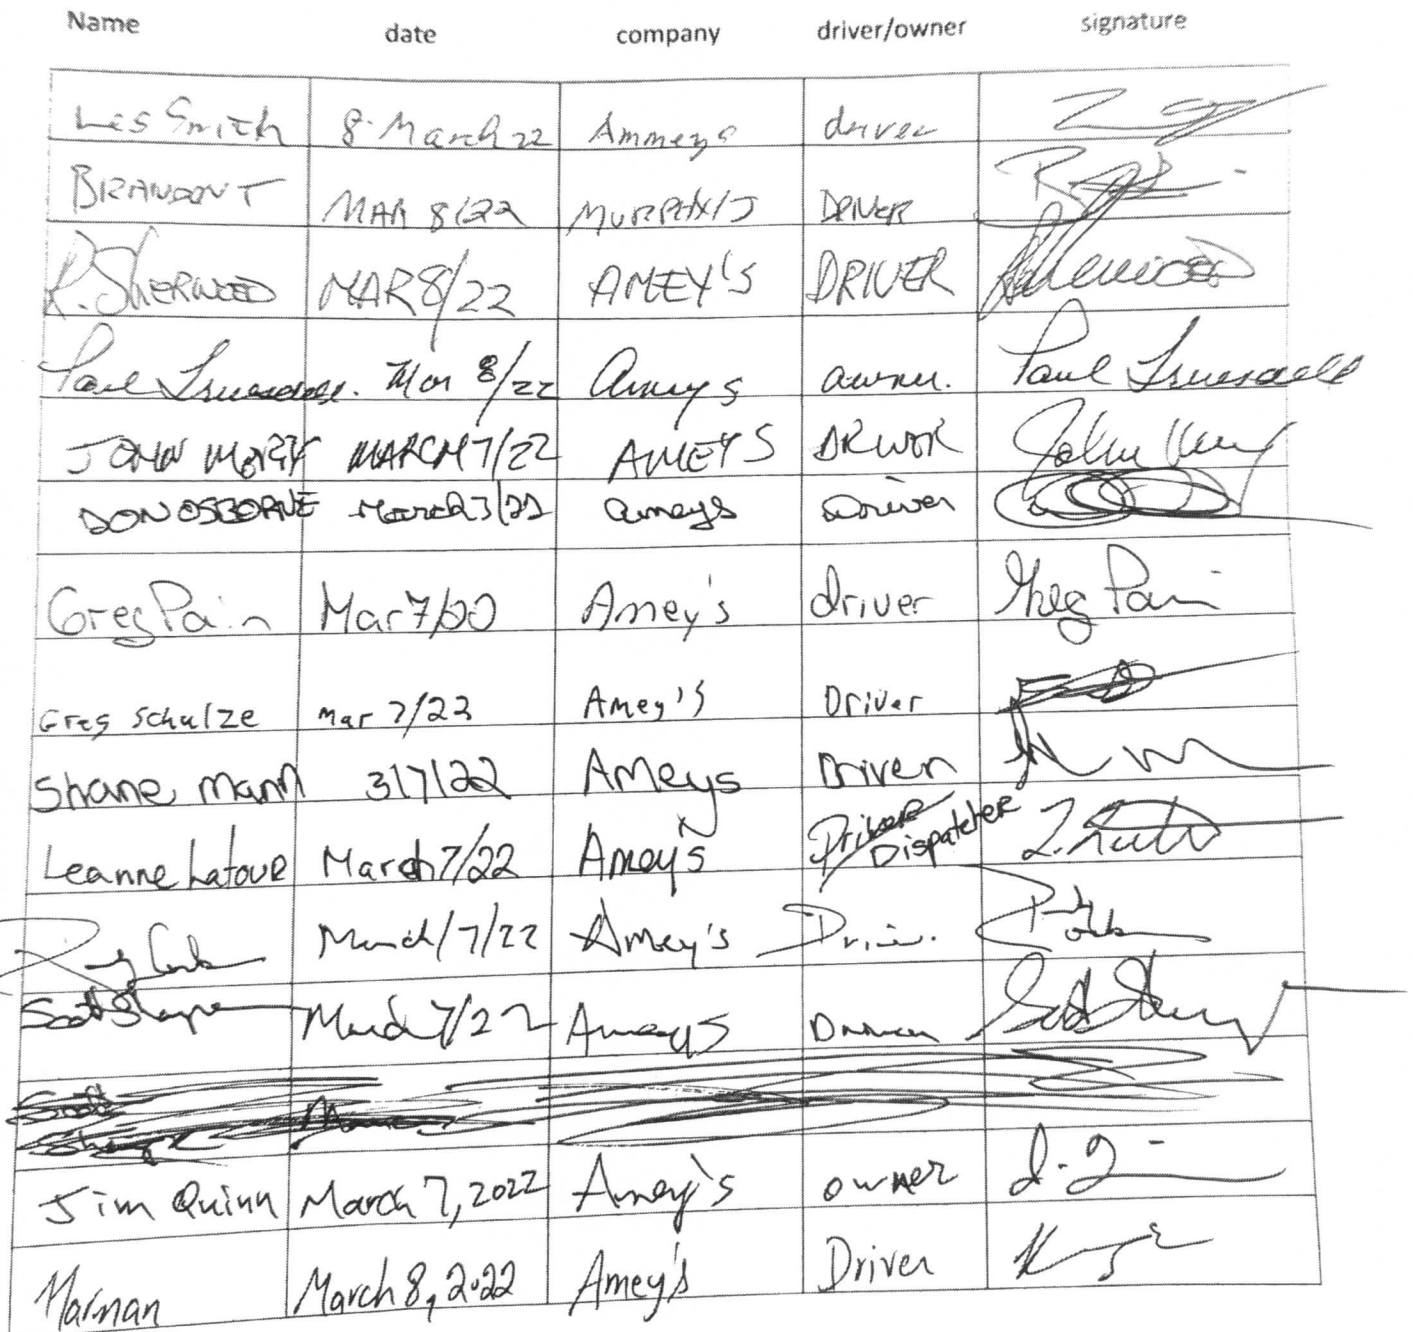 Name date company driver/owner signature
Les Smith 8 March 22 Ammeys driver
BRANDON T MAR 8/22 MURPHY'S DRIVER
R. SHERWOOD MAR 8/22 AMEY'S DRIVER Sherwood
Paul Truesdell. Mar 8/22 Ameys owner. Paul Truesdell
JOHN MARCH 7/22 AMEYS DRIVER John
DON OSBORNE March 7/22 ameys Driver
Greg Pain Mar 7/20 Amey's driver Greg Pain
Greg Schulze mar 7/22 Amey's Driver
Shane Mann 3/7/22 AMeys Driver
Leanne Latour March 7/22 Amey's Driver Dispatcher
March/7/22 Amey's
Scott March 7/22 Ameys Driver Scott
Scott
Jim Quinn March 7, 2022 Amey's owner
Harman March 8, 2022 Amey's Driver